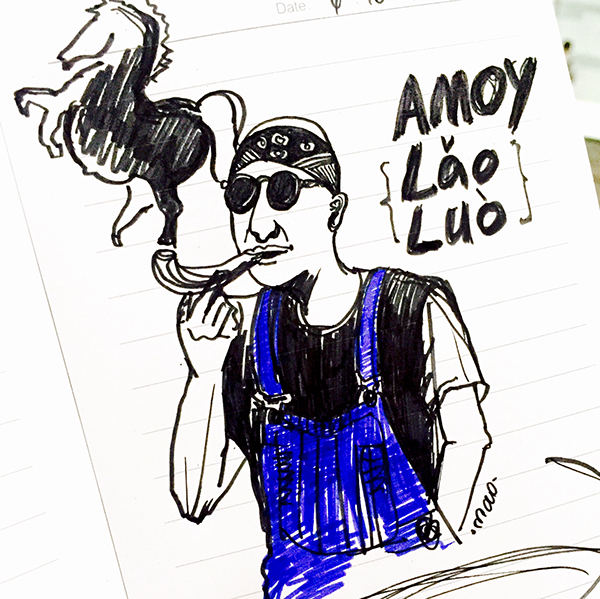 Date
AMOY
{Lǎo
Luò}
.mao.